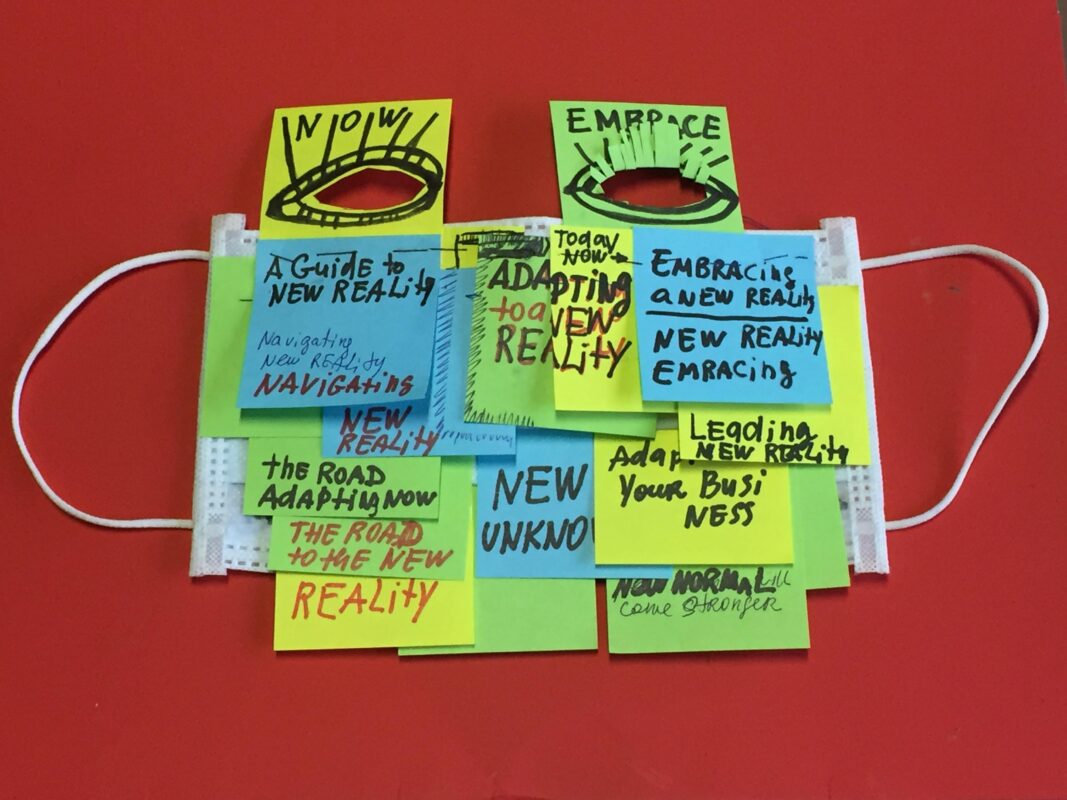 NOW
EMBRACE
A Guide to
NEW REALity
Navigating
New REALity
NAVIGATING
NEW
REALITY
ADAPTING
to a NEW
REALity
Today
NOW
EMBRAcing
a NEW REALity
NEW REALity
EMBRACING
Leading
NEW REALity
the ROAD
AdAptingNOW
THE ROAD
to the NEW
REALity
NEW
UNKNO
Adap
Your Busi
NESS
NEW NORMAL
come STRONGER